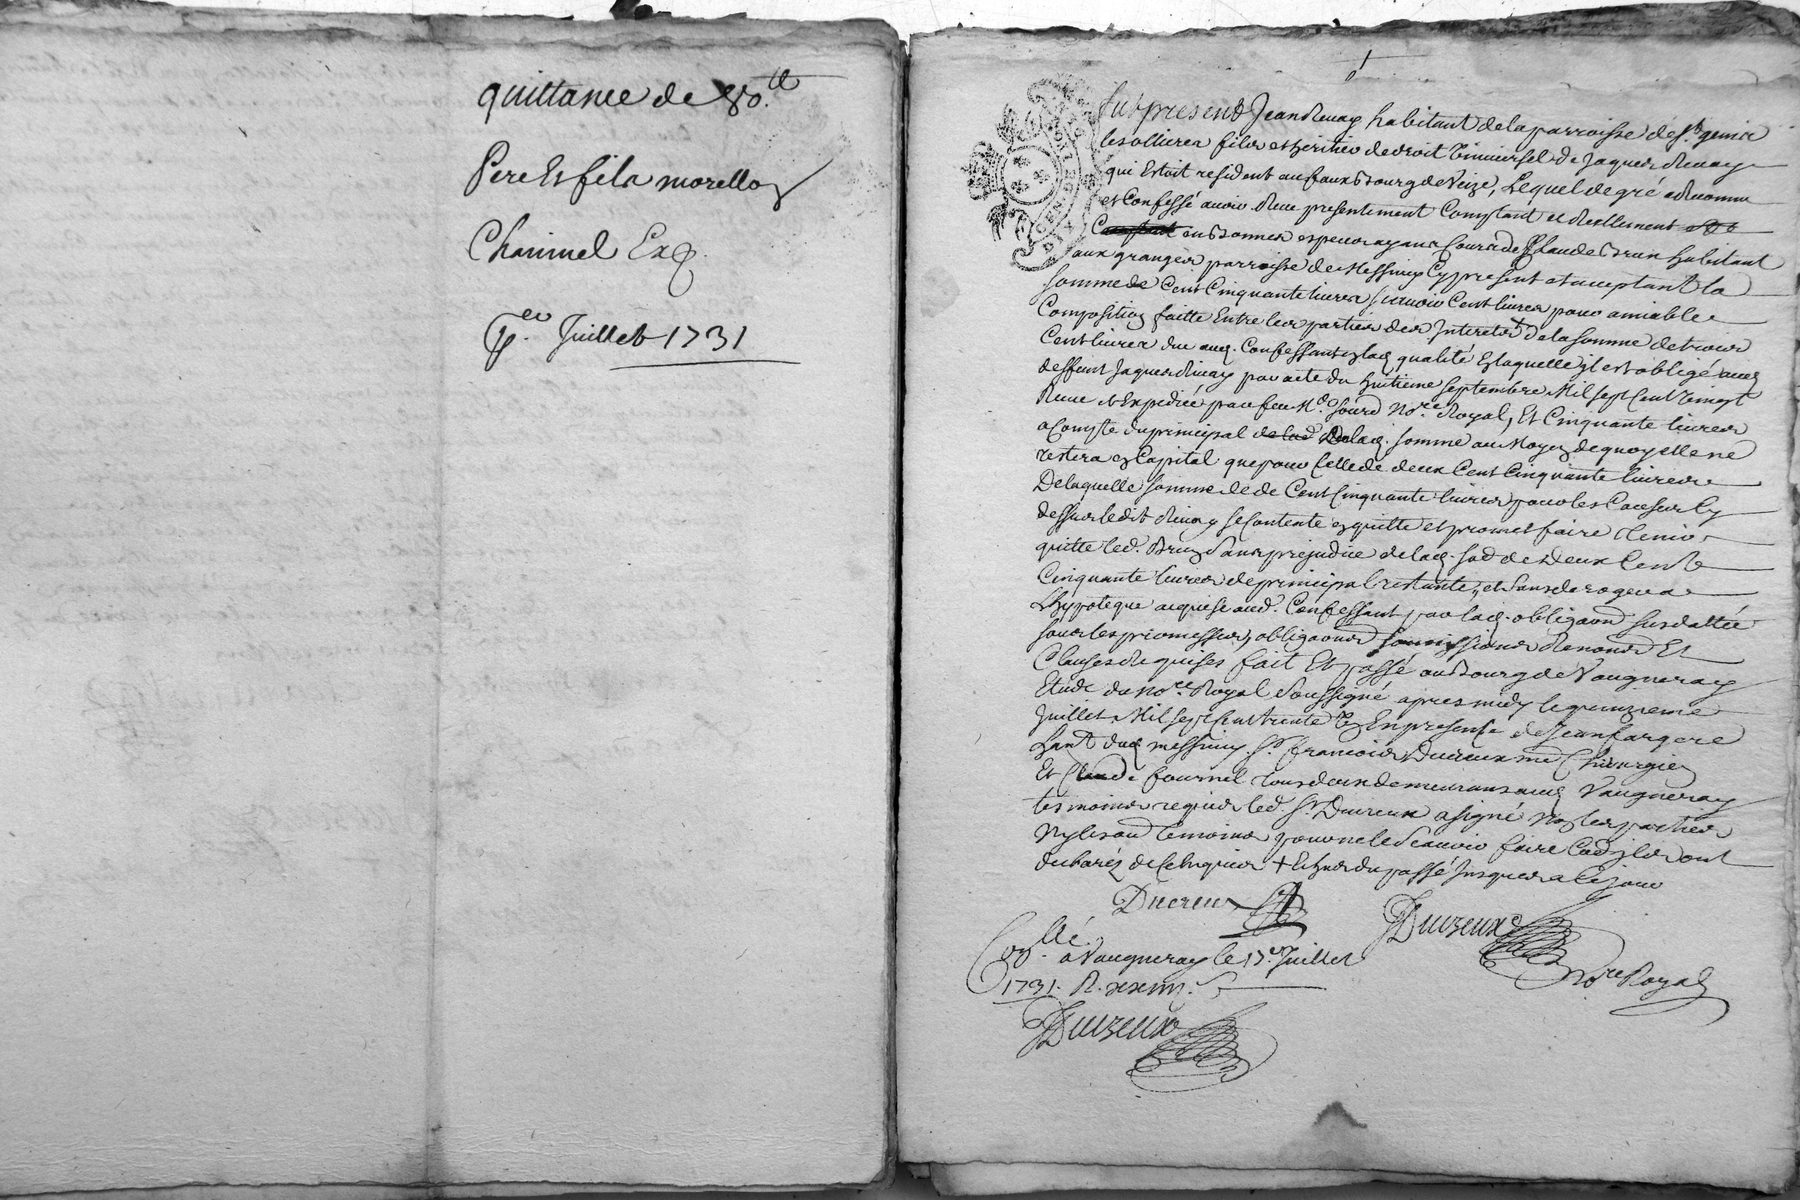 quittance de 80.tt
Pere et fils morellon
Charmel Exp.
Juillet 1731
Fut present Jean Rivay habitant de la parroisse de st. genis
les ollieres fils et heritier de droit universel de Jaques Rivay
qui Estoit resident au fauxbourg de Veize, Lequel de gré a Reconnu
et Confessé avoir Receu presentement Comptant et Reellement
en bonnes especes ayant Cours de Claude Brun habitant
aux granges parroisse de Messimy Cy present et acceptant la
somme de Cent Cinquante livres scavoir Cent livres pour amiable
Composition faitte Entre les parties des Interets + de la somme de trois
Cent livres due aud. Confessant en lad. qualité En laquelle il est obligé aud.
deffunt Jaques Rivay par acte du huitieme septembre Mil sept Cent vingt
Receu et Expedié par feu Me. Sourd No.re Royal, Et Cinquante livres
a Compte du principal de lad. somme au Moyen de quoy elle ne
restera en Capital que pour celle de deux Cent Cinquante livres
De laquelle somme de Cent Cinquante livres pour les Causes Cy
dessus ledit Rivay se Contente en quitte et promet faire tenir
quitte led. Brun sans prejudice de lad. de Deux Cent
Cinquante livres de principal restante, et sans deroger a
Lhypoteque acquise aud. Confessant par lad. obligaon susdattée
sous les promesses, obligaons soumissions Renons Et
Clauses Requises fait Et passé au Bourg de Vaugneray
Etude du No.re Royal soussigné apres midy le quinzieme
Juillet Mil sept Cent trente un En presence de Jean fargere
hant. dud. messimy, Sr. francois Ducreux me Chirurgien
Et Claude fournel tous deux demeurans aud. Vaugneray
tesmoins requis led. Sr. Ducreux a signé Non les parties
Ny les au. temoins pour ne le scavoir faire
de ce Enquis + Echus du passé Jusques a ce jour
Ducreux
Ducreux
No.re Royal
Con.llé a Vaugneray le 15.e Juillet
1731. R.
Ducreux